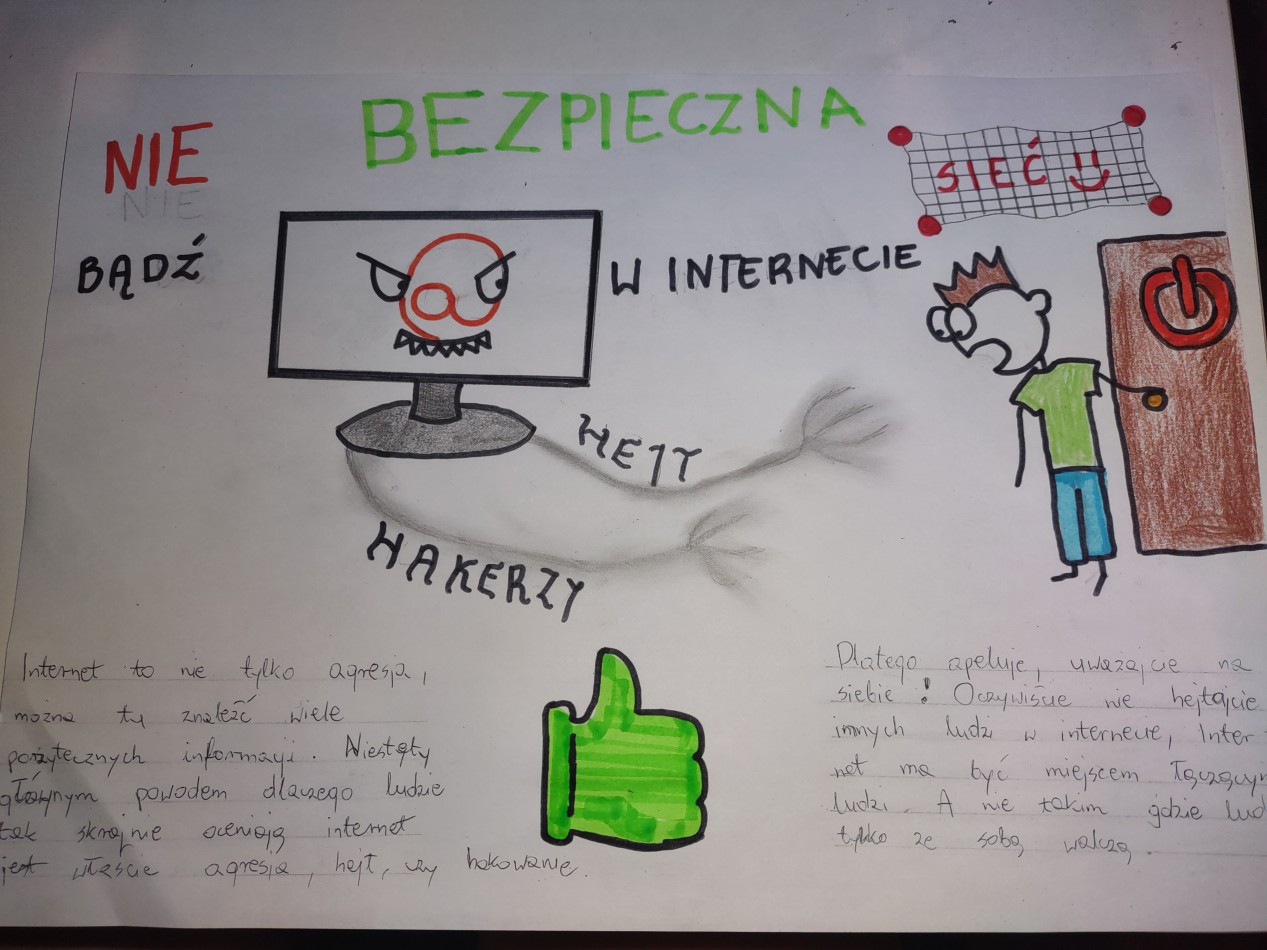 NIE BEZPIECZNA SIEĆ
NIE
BĄDŹ W INTERNECIE
HEJT
HAKERZY
Internet to nie tylko agresja,
można tu znaleźć wiele
pożytecznych informacji. Niestęty
głównym powodem dlaczego ludzie
tak skrajnie oceniają internet
jest właście agresja, hejt, czy hakowanie.
Dlatego apeluję, uważajcie na
siebie! Oczywiście nie hejtajcie
innych ludzi w internecie, Inter-
net ma być miejscem łączącym
ludzi. A nie takim gdzie lud
tylko ze sobą walczą.